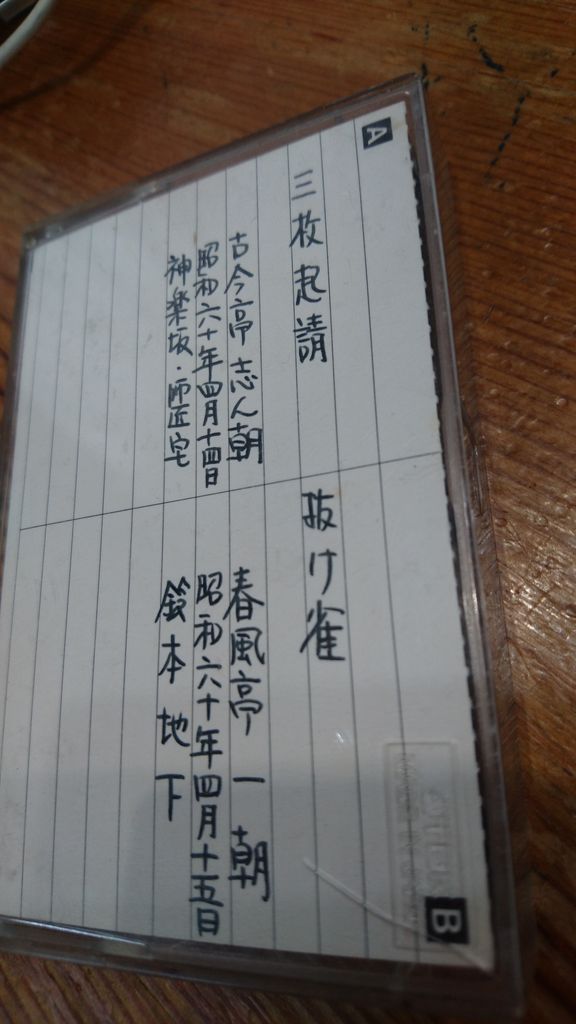 A
三枚起請
古今亭志ん朝
昭和六十年四月十四日
神楽坂・師匠宅
B
抜け雀
春風亭一朝
昭和六十年四月十五日
鈴本地下